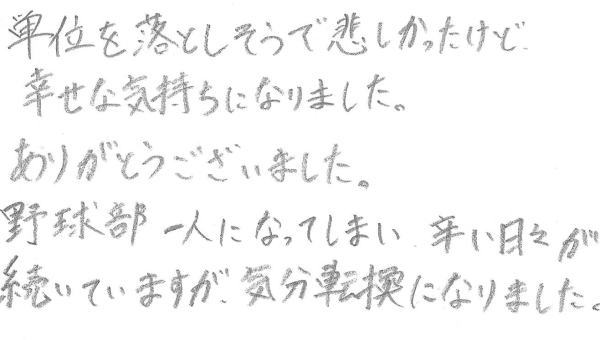 単位を落としそうで悲しかったけど
幸せな気持ちになりました。
ありがとうございました。
野球部 一人になってしまい 辛い日々が
続いていますが、気分転換になりました。